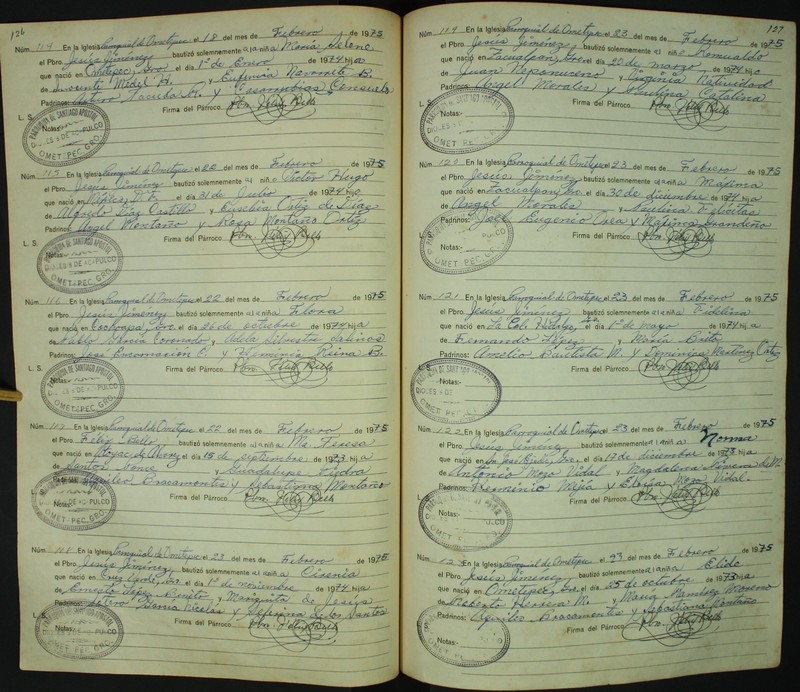 126
Núm. 114 En la Iglesia Parroquial de Ometepec el 18 del mes de Febrero de 1975
el Pbro. Jesús Jiménez bautizó solemnemente a la niña María Selene
que nació en Ometepec, Gro. el día 1º de Enero de 1974 hija
de Vicente Midel H. y Eufemia Navarrete B.
Padrinos: Arturo y Consuelo
Firma del Párroco Pbro. Félix
L. S.
Notas:-
PARROQUIA DE SANTIAGO APOSTOL
DIOCESIS DE ACAPULCO
OMETEPEC, GRO.
Núm. 115 En la Iglesia Parroquial de Ometepec el 22 del mes de Febrero de 1975
el Pbro. Jesús Jiménez bautizó solemnemente al niño Víctor Hugo
que nació en México D.F. el día 31 de Julio de 1974 hijo
de Alfredo Díaz Castillo y Eusebia Ortiz de Díaz
Padrinos: Angel Montaño y Rosa Montaño Ortiz
Firma del Párroco Pbro. Félix
L. S.
Notas:-
PARROQUIA DE SANTIAGO APOSTOL
DIOCESIS DE ACAPULCO
OMETEPEC, GRO.
Núm. 116 En la Iglesia Parroquial de Ometepec el 22 del mes de Febrero de 1975
el Pbro. Jesús Jiménez bautizó solemnemente a la niña Flora
que nació en Cochoapa, Gro. el día 26 de octubre de 1974 hija
de Pablo Coronado y Adela Silvestre Salinas
Padrinos: José Encarnación C. y Herminia Reina B.
Firma del Párroco Pbro. Félix
L. S.
Notas:-
PARROQUIA DE SANTIAGO APOSTOL
DIOCESIS DE ACAPULCO
OMETEPEC, GRO.
Núm. 117 En la Iglesia Parroquial de Ometepec el 22 del mes de Febrero de 1975
el Pbro. Félix Bello bautizó solemnemente a la niña Ma. Teresa
que nació en Atoyac de Alvarez el día 15 de septiembre de 1973 hija
de Santos Ponce y Guadalupe Piedra
Padrinos: Aquileo Bracamontes y Sebastiana Montaño
Firma del Párroco Pbro. Félix
L. S.
Notas:-
PARROQUIA DE SANTIAGO APOSTOL
DIOCESIS DE ACAPULCO
OMETEPEC, GRO.
Núm. 118 En la Iglesia Parroquial de Ometepec el 23 del mes de Febrero de 1975
el Pbro. Jesús Jiménez bautizó solemnemente a la niña Cirenia
que nació en Cruz el día 1º de noviembre de 1974 hija
de Ernesto López Benito y Mariquita de Jesús
Padrinos: Pedro Nicolás y Seferina de los Santos
Firma del Párroco Pbro. Félix
L. S.
Notas:-
PARROQUIA DE SANTIAGO APOSTOL
DIOCESIS DE ACAPULCO
OMETEPEC, GRO.
127
Núm. 119 En la Iglesia Parroquial de Ometepec el 23 del mes de Febrero de 1975
el Pbro. Jesús Jiménez bautizó solemnemente al niño Romualdo
que nació en Zacualpan, Gro. el día 20 de marzo de 1974 hijo
de Juan Nepomuceno y Virginia Natividad
Padrinos: Angel Morales y Paulina Catalina
Firma del Párroco Pbro. Félix
L. S.
Notas:-
PARROQUIA DE SANTIAGO APOSTOL
DIOCESIS DE ACAPULCO
OMETEPEC, GRO.
Núm. 120 En la Iglesia Parroquial de Ometepec el 23 del mes de Febrero de 1975
el Pbro. Jesús Jiménez bautizó solemnemente a la niña Máxima
que nació en Zacualpan, Gro. el día 30 de diciembre de 1974 hija
de Angel Morales y Paulina Felicitas
Padrinos: Joel Eugenio Orea y Máxima Grandeño
Firma del Párroco Pbro. Félix
L. S.
Notas:-
DIOCESIS DE ACAPULCO
OMETEPEC, GRO.
Núm. 121 En la Iglesia Parroquial de Ometepec el 23 del mes de Febrero de 1975
el Pbro. Jesús Jiménez bautizó solemnemente a la niña Fidelina
que nació en La Col. Hidalgo, Gro. el día 1º de mayo de 1974 hija
de Fernando López y María Brito
Padrinos: Amelio Bautista M. y Dominica Martínez Ortiz
Firma del Párroco Pbro. Félix
L. S.
Notas:-
PARROQUIA DE SANTIAGO APOSTOL
DIOCESIS DE
Núm. 122 En la Iglesia Parroquial de Ometepec el 23 del mes de Febrero de 1975
el Pbro. Jesús Jiménez bautizó solemnemente a la niña Norma
que nació en San José, Gro. el día 17 de diciembre de 1973 hija
de Antonio Mozo Vidal y Magdalena de M.
Padrinos: Herminio Mejía y Eloisa Mozo Vidal.
Firma del Párroco Pbro. Félix
L. S.
Notas:-
Núm. 123 En la Iglesia Parroquial de Ometepec el 23 del mes de Febrero de 1975
el Pbro. Jesús Jiménez bautizó solemnemente a la niña Elida
que nació en Ometepec, Gro. el día 25 de octubre de 1973 hija
de Roberto Herrera M. y María Ramírez Moreno
Padrinos: Aquileo Bracamontes y Sebastiana Montaño
Firma del Párroco Pbro. Félix
L. S.
Notas:-